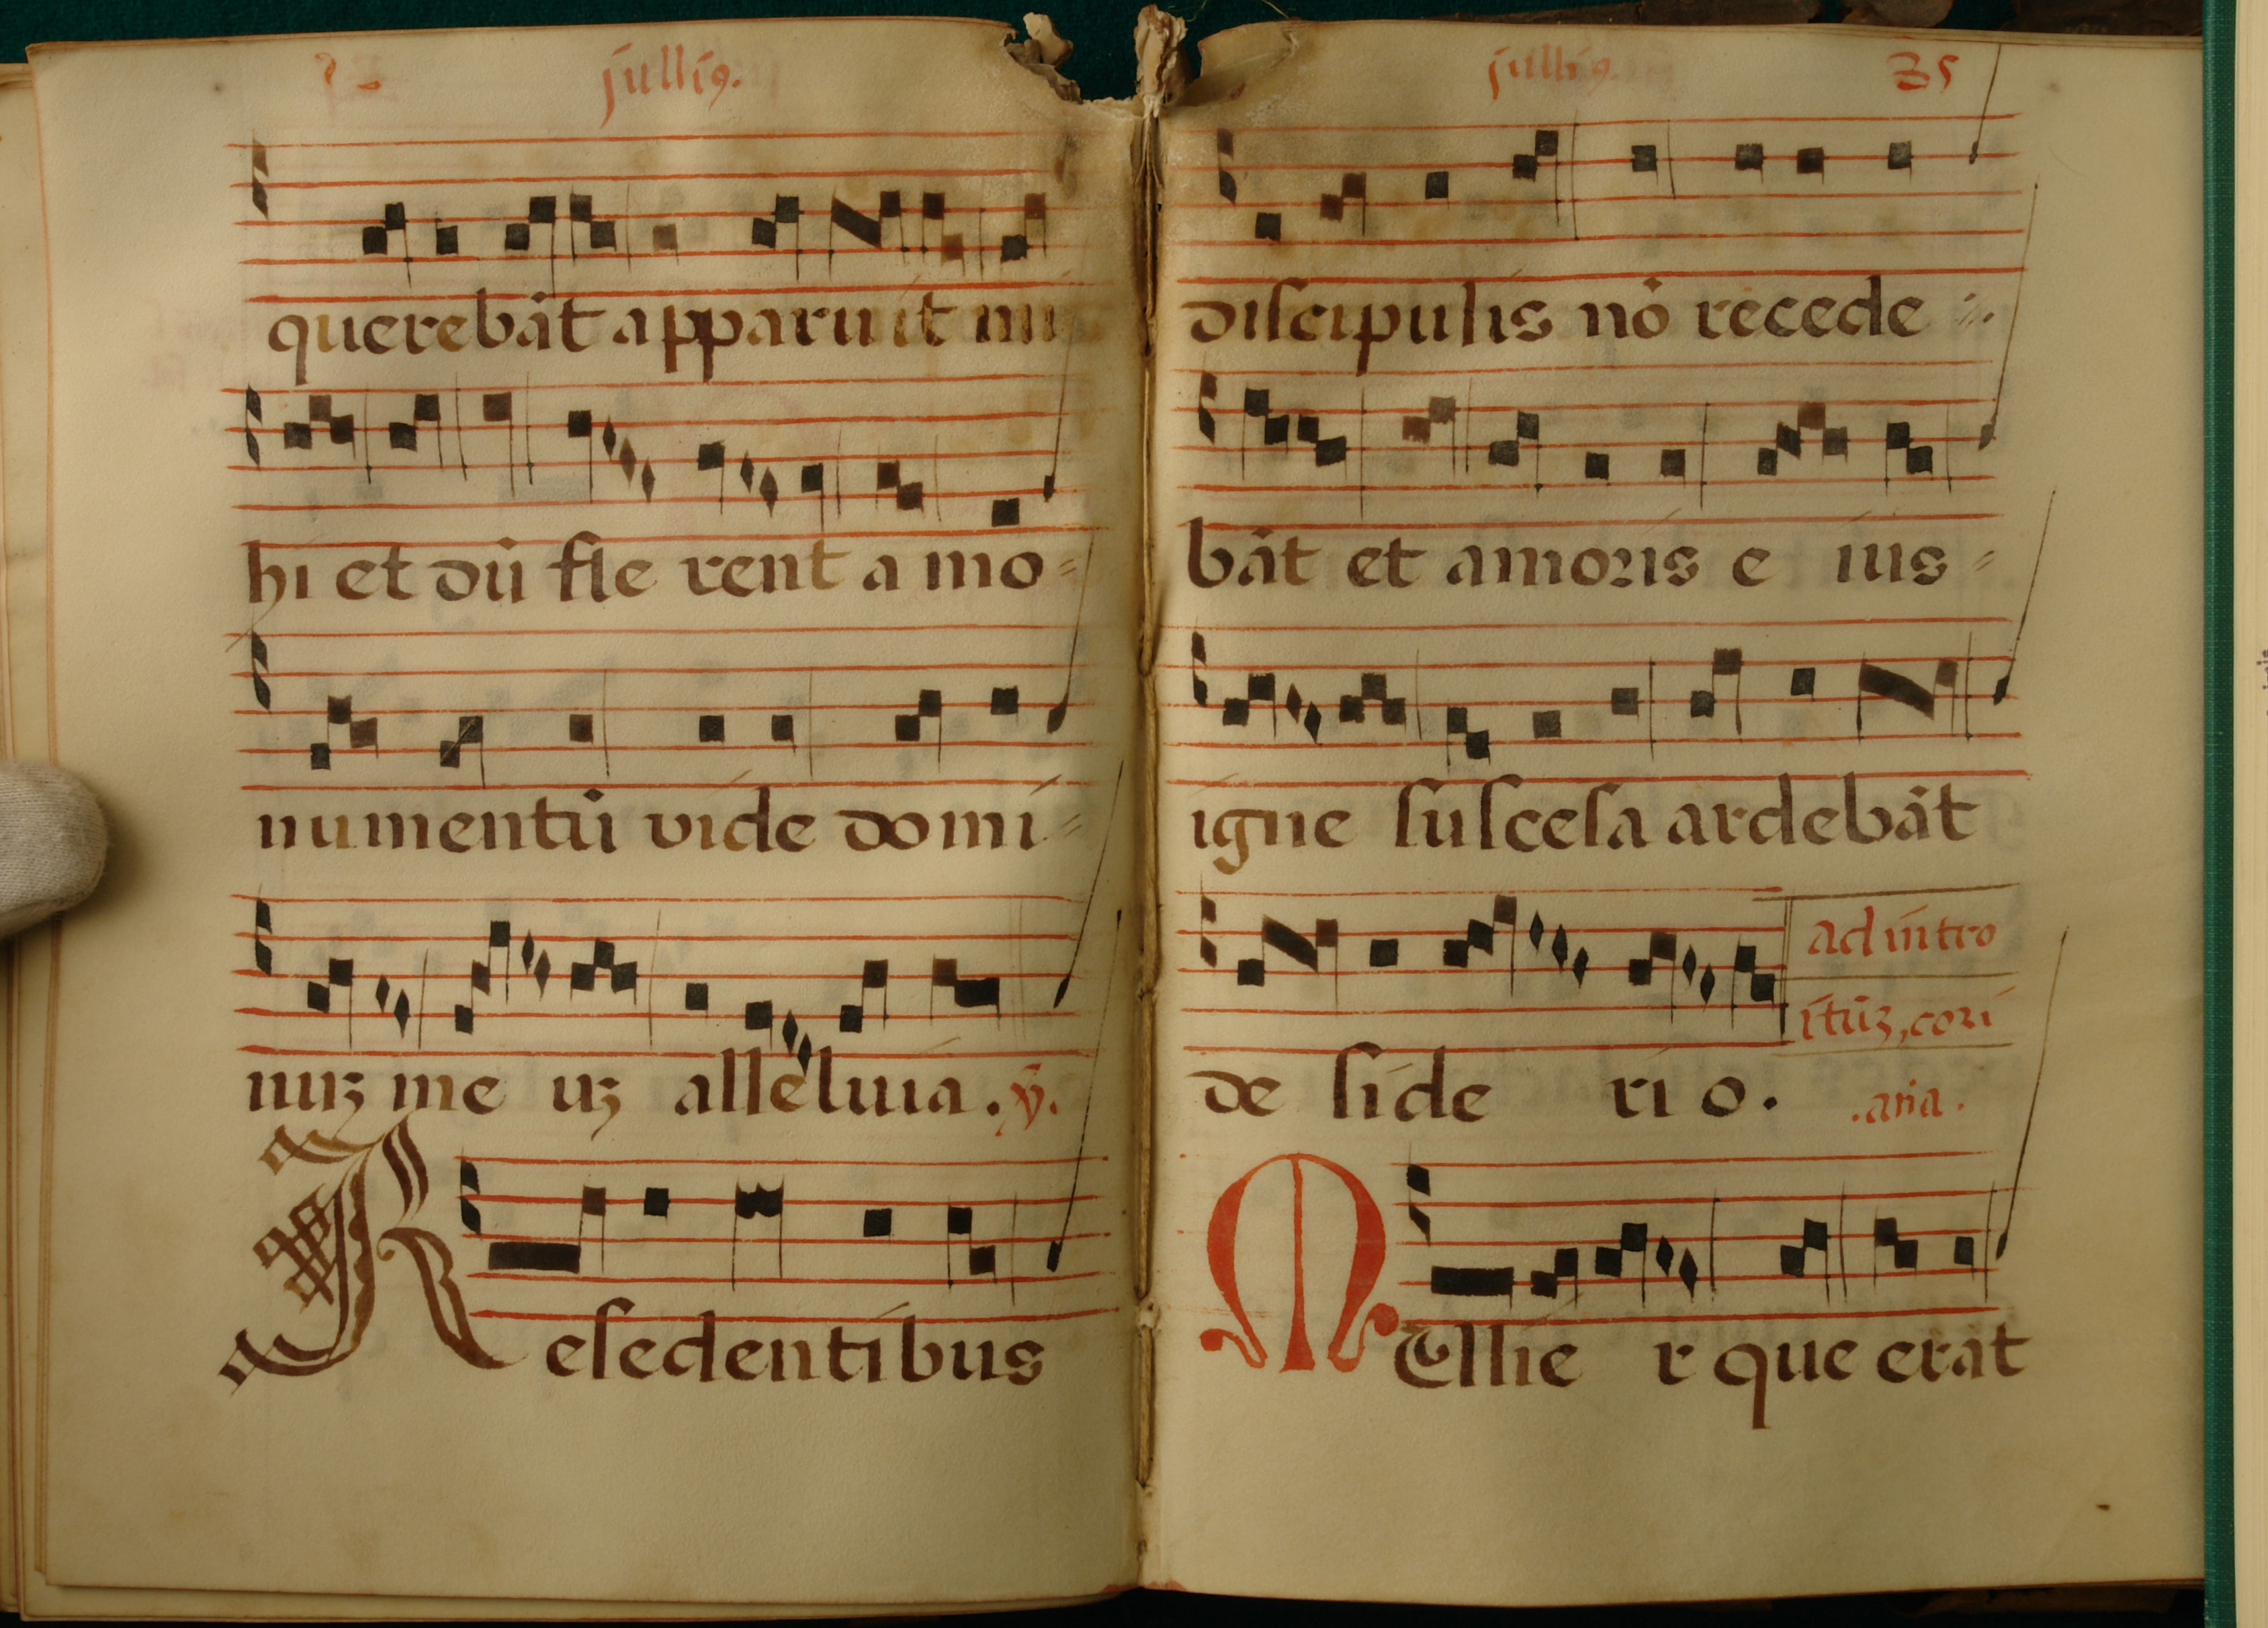 julliꝰ.
querebāt apparuit mi
hi et dū fle rent a mo=
numentū vide domi=
nuꝫ me uꝫ alleluia. ꝟ.
Resedentibus
jullius.
35
discipulis nō recede
bāt et amoris e ius=
igne suscesa ardebāt
de side rio.
ad intro
itūꝫ, cori
.ana.
Mullie r que erat